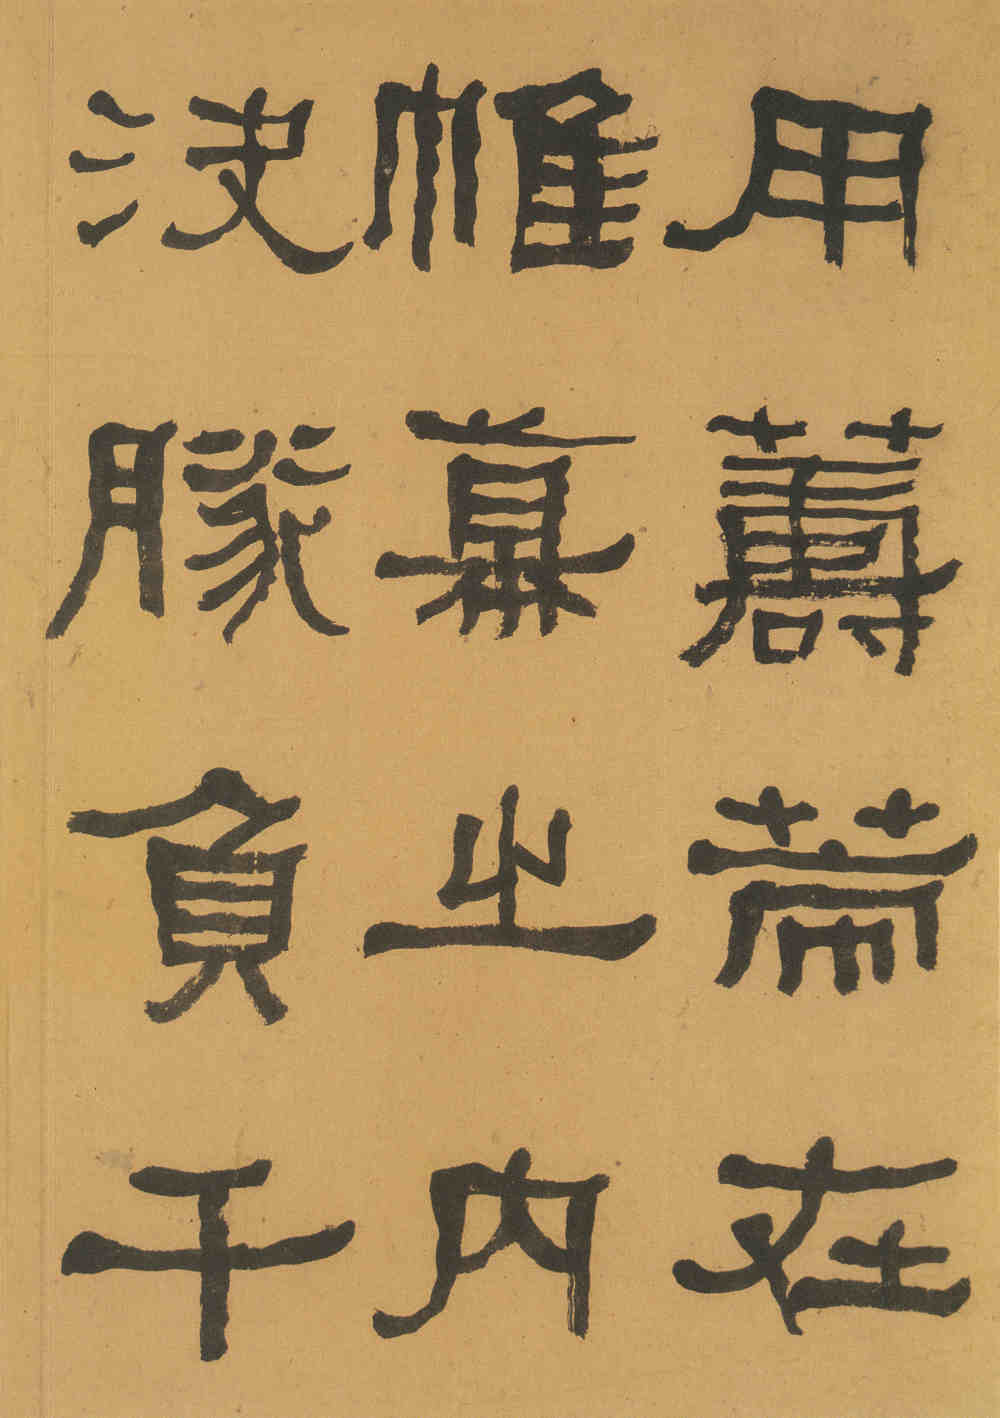 用籌策在
帷幕之內
決勝負千